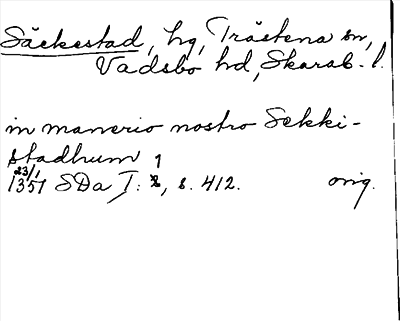 Säckestad, hg, Trästena sn,
Vadsbo hd, Skarab. l.
in manerio nostro Sekki-
stadhum
23/1 1351 SDa I: 1, s. 412. orig.